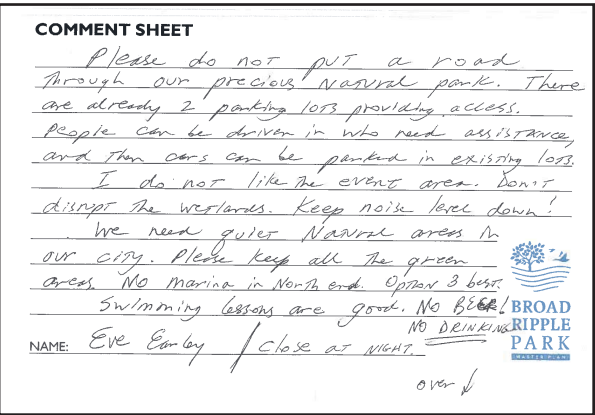 COMMENT SHEET
Please do not put a road
through our precious Natural park. There
are already 2 parking lots providing access.
People can be driven in who need assistance,
and then cars can be parked in existing lots.
I do not like the event area. Don't
disrupt the wetlands. Keep noise level down!
We need quiet Natural areas in
our city. Please keep all the green
areas. No marina in North end. Option 3 best.
Swimming lessons are good. No BEER!
NO DRINKING
NAME: Eve Earley / Close at NIGHT.
over ↓
BROAD
RIPPLE
PARK
MASTER PLAN